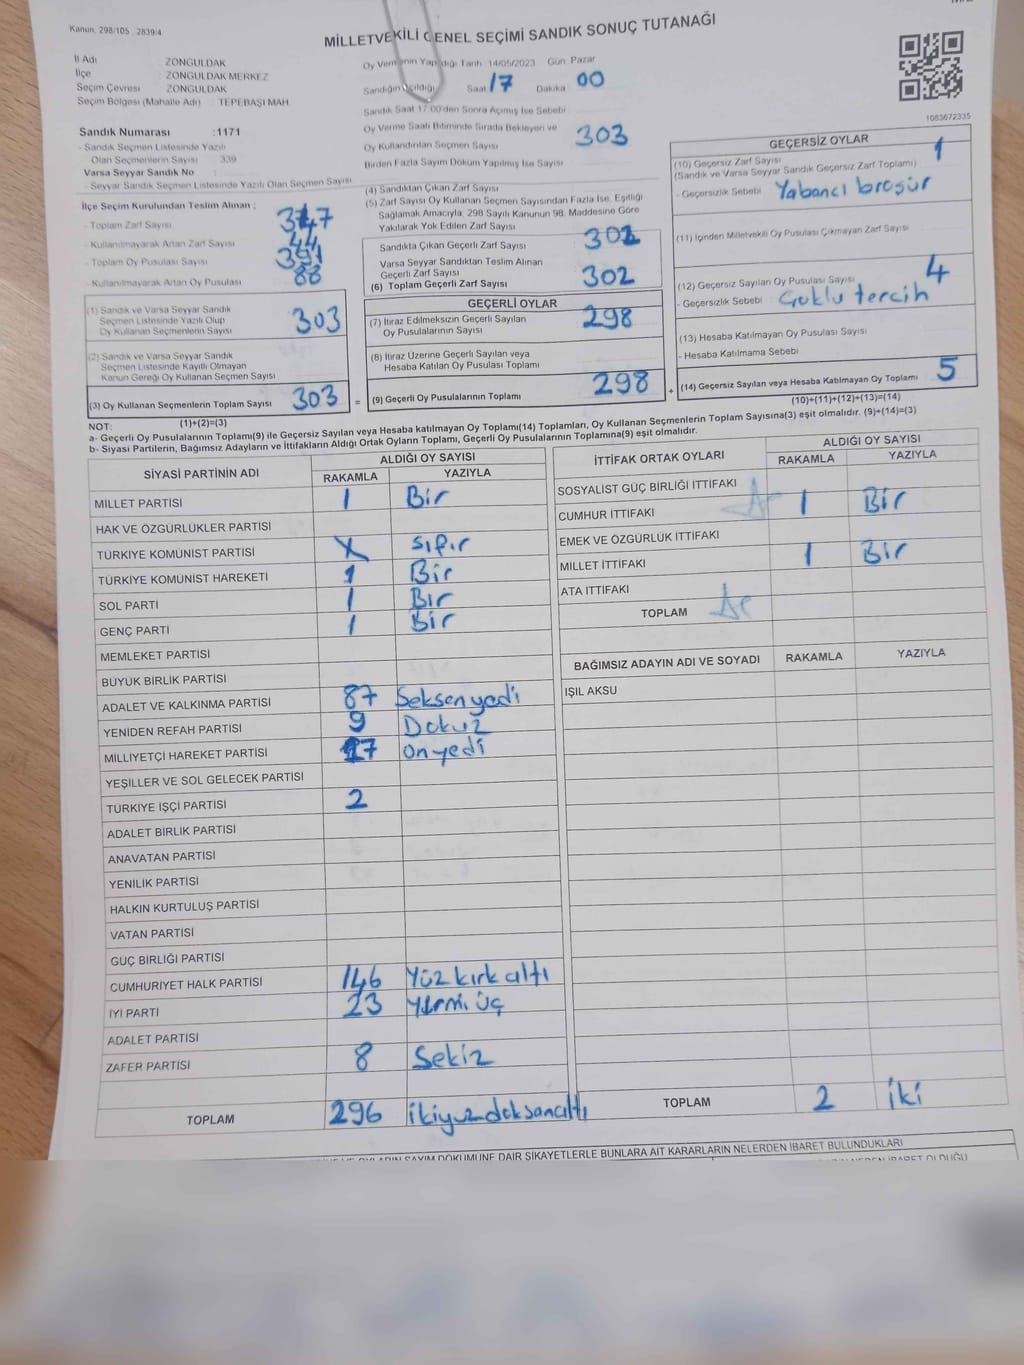 Kanun: 298/105 , 2839/4
MİLLETVEKİLİ GENEL SEÇİMİ SANDIK SONUÇ TUTANAĞI
İl Adı ZONGULDAK
İlçe ZONGULDAK MERKEZ
Seçim Çevresi ZONGULDAK
Seçim Bölgesi (Mahalle Adı) : TEPEBAŞI MAH.
Sandık Numarası :1171
- Sandık Seçmen Listesinde Yazılı
Olan Seçmenlerin Sayısı 339
Varsa Seyyar Sandık No :
- Seyyar Sandık Seçmen Listesinde Yazılı Olan Seçmen Sayısı
İlçe Seçim Kurulundan Teslim Alınan ;
- Toplam Zarf Sayısı
- Kullanılmayarak Artan Zarf Sayısı 44
- Toplam Oy Pusulası Sayısı
- Kullanılmayarak Artan Oy Pusulası 88
(1) Sandık ve Varsa Seyyar Sandık
Seçmen Listesinde Yazılı Olup
Oy Kullanan Seçmenlerin Sayısı 303
(2) Sandık ve Varsa Seyyar Sandık
Seçmen Listesinde Kayıtlı Olmayan
Kanun Gereği Oy Kullanan Seçmen Sayısı
(3) Oy Kullanan Seçmenlerin Toplam Sayısı 303 =
(1)+(2)=(3)
Oy Vermenin Yapıldığı Tarih 14/05/2023 Gün Pazar
Sandığın Açıldığı Saat 17 Dakika 00
Sandık Saat 17:00'den Sonra Açmış İse Sebebi
Oy Verme Saati Bitiminde Sırada Bekleyen ve
Oy Kullandırılan Seçmen Sayısı
Birden Fazla Sayım Döküm Yapılmış İse Sayısı
303
(4) Sandıktan Çıkan Zarf Sayısı
(5) Zarf Sayısı Oy Kullanan Seçmen Sayısından Fazla İse, Eşitliği
Sağlamak Amacıyla, 298 Sayılı Kanunun 98. Maddesine Göre
Yakılarak Yok Edilen Zarf Sayısı
Sandıkta Çıkan Geçerli Zarf Sayısı 302
Varsa Seyyar Sandıktan Teslim Alınan
Geçerli Zarf Sayısı
(6) Toplam Geçerli Zarf Sayısı 302
GEÇERLİ OYLAR
(7) İtiraz Edilmeksizin Geçerli Sayılan
Oy Pusulalarının Sayısı 298
(8) İtiraz Üzerine Geçerli Sayılan veya
Hesaba Katılan Oy Pusulası Toplamı
(9) Geçerli Oy Pusulalarının Toplamı 298 +
1083672335
GEÇERSİZ OYLAR
(10) Geçersiz Zarf Sayısı 1
(Sandık ve Varsa Seyyar Sandık Geçersiz Zarf Toplamı)
- Geçersizlik Sebebi Yabancı broşür
(11) İçinden Milletvekili Oy Pusulası Çıkmayan Zarf Sayısı
(12) Geçersiz Sayılan Oy Pusulası Sayısı 4
- Geçersizlik Sebebi Çoklu tercih
(13) Hesaba Katılmayan Oy Pusulası Sayısı
- Hesaba Katılmama Sebebi
(14) Geçersiz Sayılan veya Hesaba Katılmayan Oy Toplamı 5
(10)+(11)+(12)+(13)=(14)
NOT:
a- Geçerli Oy Pusulalarının Toplamı(9) ile Geçersiz Sayılan veya Hesaba katılmayan Oy Toplamı(14) Toplamları, Oy Kullanan Seçmenlerin Toplam Sayısına(3) eşit olmalıdır. (9)+(14)=(3)
b- Siyasi Partilerin, Bağımsız Adayların ve İttifakların Aldığı Ortak Oyların Toplamı, Geçerli Oy Pusulalarının Toplamına(9) eşit olmalıdır.
SİYASİ PARTİNİN ADI ALDIĞI OY SAYISI
RAKAMLA YAZIYLA
MİLLET PARTİSİ 1 Bir
HAK VE ÖZGÜRLÜKLER PARTİSİ
TÜRKİYE KOMÜNİST PARTİSİ X sıfır
TÜRKİYE KOMÜNİST HAREKETİ 1 Bir
SOL PARTİ 1 Bir
GENÇ PARTİ 1 Bir
MEMLEKET PARTİSİ
BÜYÜK BİRLİK PARTİSİ
ADALET VE KALKINMA PARTİSİ 87 Seksenyedi
YENİDEN REFAH PARTİSİ 9 Dokuz
MİLLİYETÇİ HAREKET PARTİSİ 17 onyedi
YEŞİLLER VE SOL GELECEK PARTİSİ
TÜRKİYE İŞÇİ PARTİSİ 2
ADALET BİRLİK PARTİSİ
ANAVATAN PARTİSİ
YENİLİK PARTİSİ
HALKIN KURTULUŞ PARTİSİ
VATAN PARTİSİ
GÜÇ BİRLİĞİ PARTİSİ
CUMHURİYET HALK PARTİSİ 146 Yüz kırk altı
İYİ PARTİ 23 Yirmi üç
ADALET PARTİSİ
ZAFER PARTİSİ 8 Sekiz
TOPLAM 296 ikiyuzdoksanaltı
İTTİFAK ORTAK OYLARI ALDIĞI OY SAYISI
RAKAMLA YAZIYLA
SOSYALİST GÜÇ BİRLİĞİ İTTİFAKI
CUMHUR İTTİFAKI 1 Bir
EMEK VE ÖZGÜRLÜK İTTİFAKI
MİLLET İTTİFAKI 1 Bir
ATA İTTİFAKI
TOPLAM
BAĞIMSIZ ADAYIN ADI VE SOYADI RAKAMLA YAZIYLA
IŞIL AKSU
TOPLAM 2 iki
SAYIM DÖKÜMÜNE DAİR ŞİKAYETLERLE BUNLARA AİT KARARLARIN NELERDEN İBARET BULUNDUKLARI